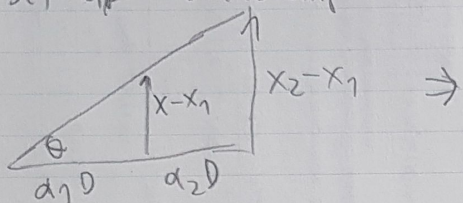 x-x₁
x₂-x₁
⇒
θ
α₁D
α₂D